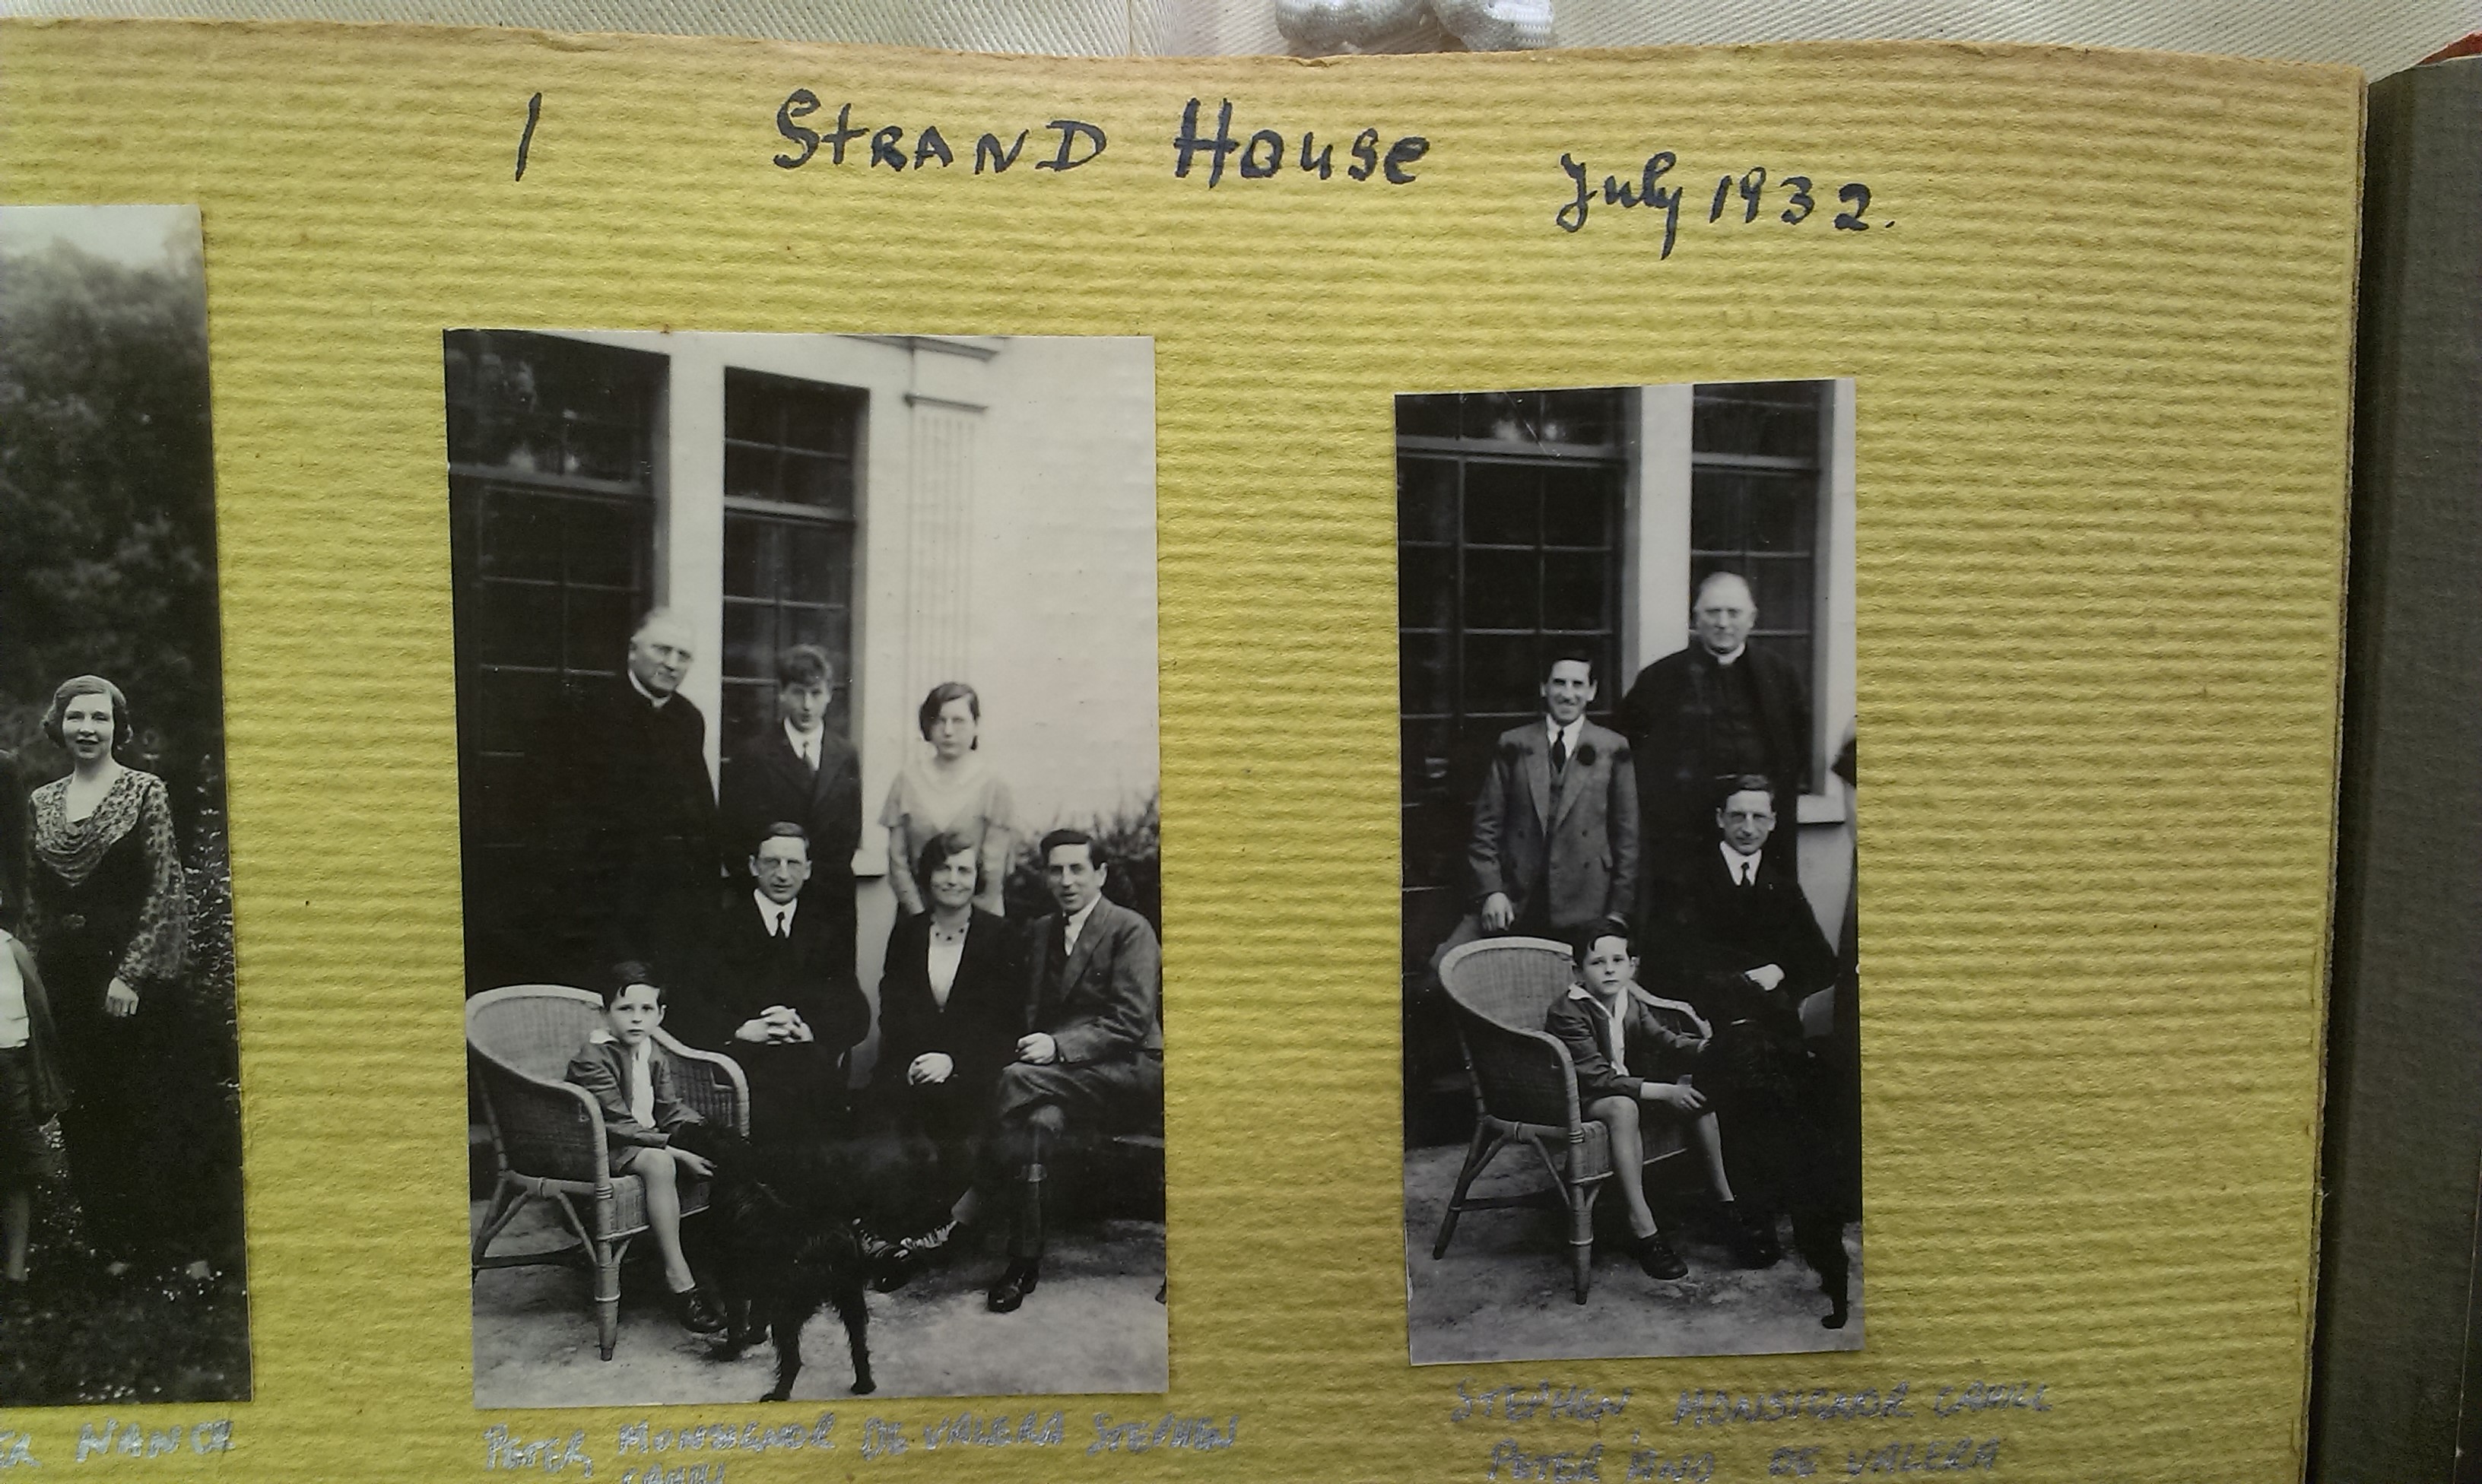 1 STRAND HOUSE July 1932.
NANCE
PETER, MONSIGNOR DE VALERA STEPHEN
CAHILL
STEPHEN, MONSIGNOR CAHILL
PETER AND DE VALERA